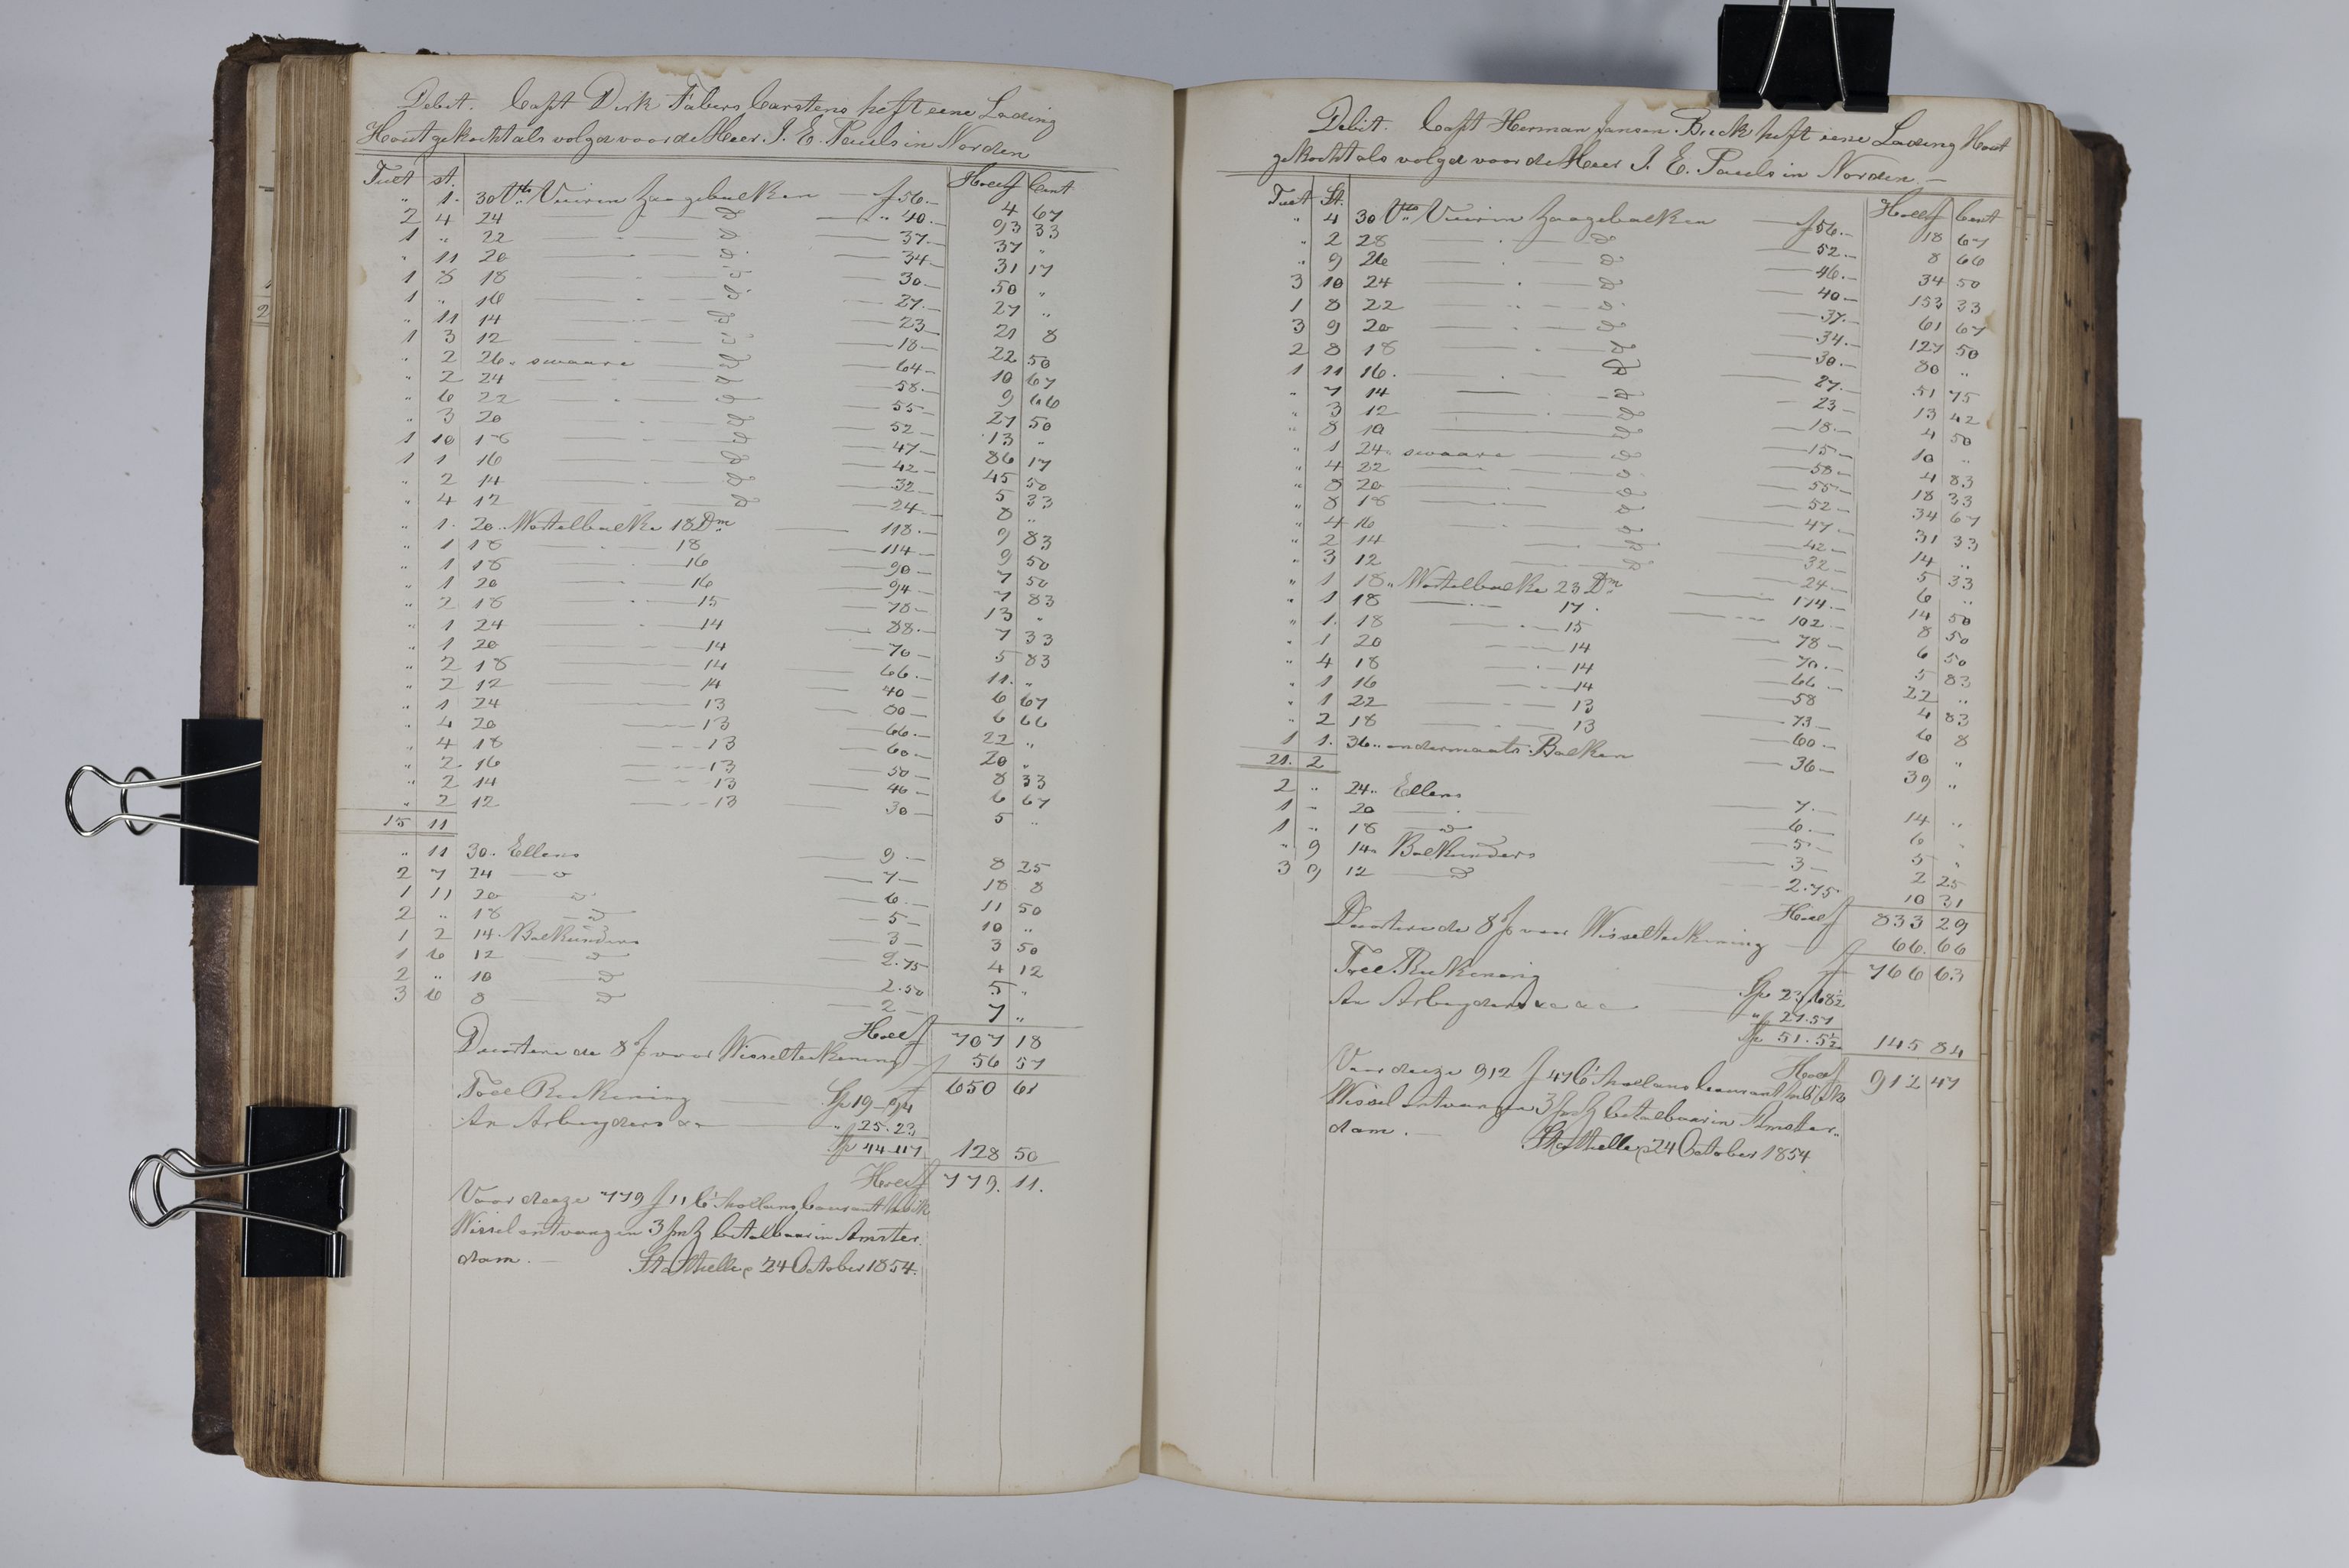 Debit. Capt Dirk Fabers Carstens heft eene Lading
Hout gekocht als volgd voor de Heer J. E. Pauls in Norden
Tuct st. Holl f Cent
" 1. 30 Vts Vuiren Zaagebalken f 56.- 4 67
2 4 24 — d " 40.- 93 33
1 " 22 — d 37.- 37 "
" 11 20 — d 34- 31 17
1 8 18 — d 30- 50 "
1 " 16 — d 27.- 27 "
" 11 14 — d 23- 21 8
1 3 12 — d 18- 22 50
" 2 26 " swaare d 64- 10 67
" 2 24 — d 58.- 9 66
" 6 22 — d 55- 27 50
" 3 20 — d 52- 13 "
1 10 18 — d 47- 86 17
1 1 16 — d 42- 45 50
" 2 14 — d 32- 5 33
" 4 12 — d 24- 8 "
" 1. 20 " Wortelbalke 18 Dm 118.- 9 83
" 1 18 — 18 114- 9 50
" 1 18 — 16 90- 7 50
" 1 20 — 16 94- 7 83
" 2 18 — 15 78- 13 "
" 1 24 — 14 88.- 7 33
" 1 20 — 14 70- 5 83
" 2 18 — 14 66.- 11. "
" 2 12 — 14 40- 6 67
" 1 24 — 13 80- 6 66
" 4 20 — 13 66.- 22 "
" 4 18 — 13 60- 20 "
" 2 16 — 13 50- 8 33
" 2 14 — 13 40- 6 67
" 2 12 — 13 30- 5 "
15 11
" 11 30. Ellens 9.- 8 25
2 7 24 — d 7- 18 8
1 11 20 — d 6.- 11 50
2 " 18 — d 5- 10 "
1 2 14. Balkunders 3- 3 50
1 6 12 — d 2.75 4 12
2 " 10 — d 2.50 5 "
3 6 8 — d 2- 7 "
Holl f 707 18
de 8 % voor Wisselteekening f 56 57
Toll Reekening Sp 19-94 f 650 61
An Arbeyders " 25.23
Sp 44-117 128 50
Holl f 779. 11.
Voor deeze 779 f 11 Ct hollans Courant heb ik
Wissel ontvangen 3 betalbaar in Amster
dam.- Stathelle 24 October 1854.
Debit. Capt Herman Jansen Buck heft eene Lading Hout
gekocht als volgd voor de Heer J. E. Pauls in Norden.-
Tuct St. Holl f Cent
" 4 30 Vts Vuiren Zaagebalken f 56.- 18 67
" 2 28 — d 52.- 8 66
" 9 26 — d 46.- 34 50
3 10 24 — d 40- 153 33
1 8 22 — d 37.- 61 67
3 9 20 — d 34.- 127 50
2 8 18 — d 30.- 80 "
1 11 16. — d 27.- 51 75
" 7 14 — d 23- 13 42
" 3 12 — d 18.- 4 50
" 8 10 — d 15.- 10 "
" 1 24 " swaare d 58- 4 83
" 4 22 — d 55- 18 33
" 8 20 — d 52- 34 67
" 8 18 — d 47- 31 33
" 4 16 — d 42- 14 "
" 2 14 — d 32- 5 33
" 3 12 — d 24- 6 "
" 1 18 " Wortelbalke 23 Dm 174.- 14 50
" 1 18 — 17. 102- 8 50
" 1. 18 — 15 78- 6 50
" 1 20 — 14 70.- 5 83
" 4 18 — 14 66- 22 "
" 1 16 — 14 58 4 83
" 1 22 — 13 73- 6 8
" 2 18 — 13 60- 10 "
1 1. 36 " ondermaats Balken 36- 39 "
21. 2
2 " 24 " Ellens 7.- 14 "
1 - 20 — 6.- 6 "
1 " 18 — d 5- 5 "
" 9 14 " Balkunders 3- 2 25
3 9 12 — d 2.75 10 31
Holl f 833 29
de 8 % voor Wisseltekening 66. 66
Toll Rekening Sp 23.68½ f 766 63
An Arbeyders &c &c " 27.57
Sp 51.5½ 145 84
Holl f 912 47
Voor deeze 912 f 47 Ct hollans Courant heb ik
Wissel ontvangen 3 betalbaar in Amster-
dam.- Stathelle 24 October 1854